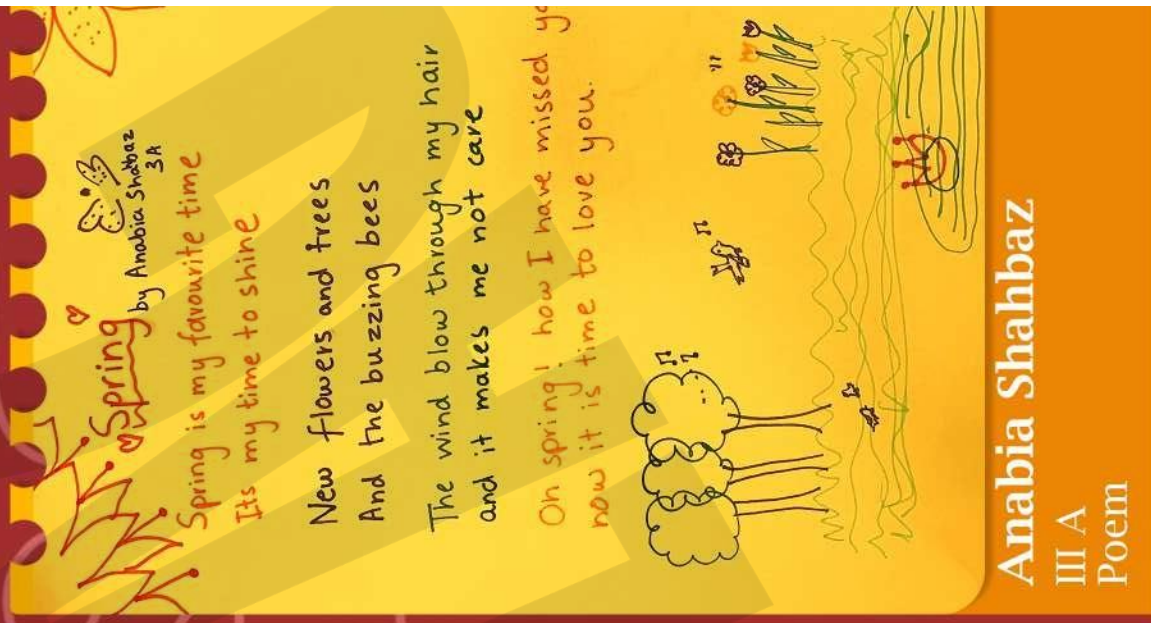 Spring
by Anabia Shahbaz
3A
Spring is my favourite time
Its my time to shine
New flowers and trees
And the buzzing bees
The wind blow through my hair
and it makes me not care
Oh spring! how I have missed yo
now it is time to love you.
Anabia Shahbaz
III A
Poem